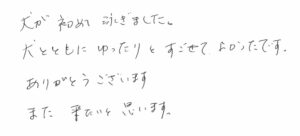 犬が初めて泳ぎました。
犬とともにゆったりとすごせてよかったです。
ありがとうございます
また来たいと思います。